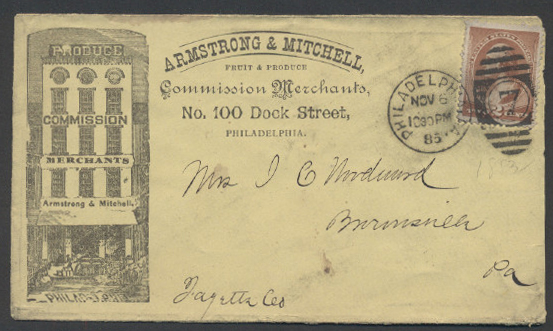 PRODUCE
COMMISSION
MERCHANTS
Armstrong & Mitchell,
PHILAD'
ARMSTRONG & MITCHELL,
FRUIT & PRODUCE
Commission Merchants,
No. 100 Dock Street,
PHILADELPHIA.
PHILADELPHIA
NOV 6
1030 PM
85
Mrs J C Woodward
Pa
Fayette Co